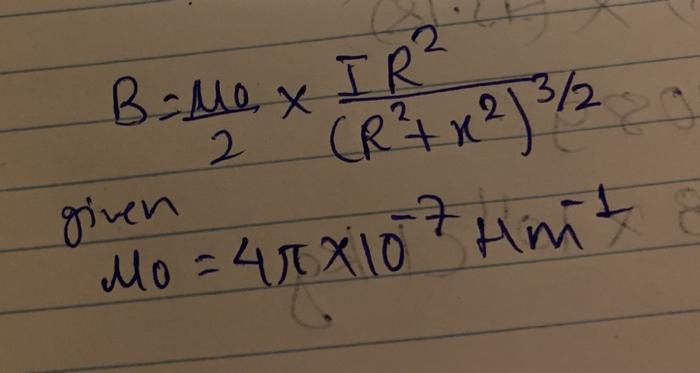 B = μ₀/2 × IR²/(R²+x²)^3/2
given
μ₀ = 4π×10⁻⁷ Hm⁻¹